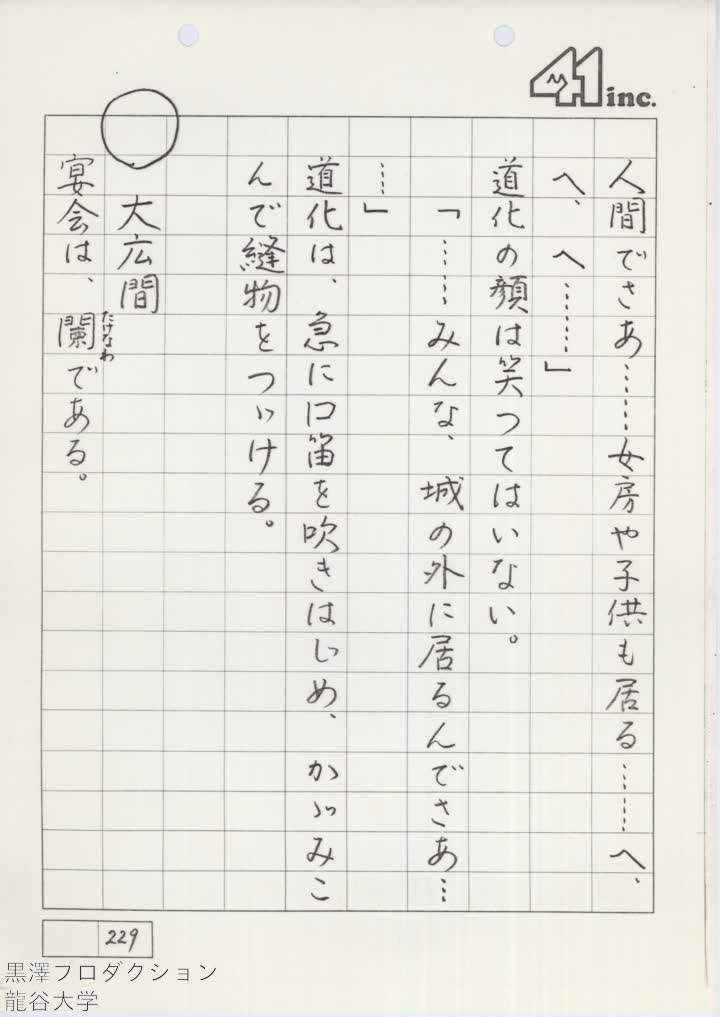 41 inc.
人間でさあ……女房や子供も居る……へ、
へ、へ………」
道化の顔は笑つてはいない。
「……みんな、城の外に居るんでさあ…
…」
道化は、急に口笛を吹きはじめ、かゞみこ
んで縫物をつゞける。
大広間
宴会は、闌である。
たけなわ
229
黒澤プロダクション
龍谷大学